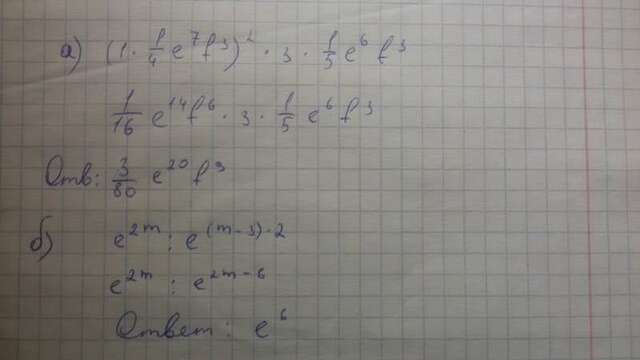 а) (1 · 1/4 e^7 f^3)^2 · 3 · 1/5 e^6 f^3
1/16 e^14 f^6 · 3 · 1/5 e^6 f^3
Отв: 3/80 e^20 f^9
б) e^2m : e^(m-3)·2
e^2m : e^2m-6
Ответ: e^6